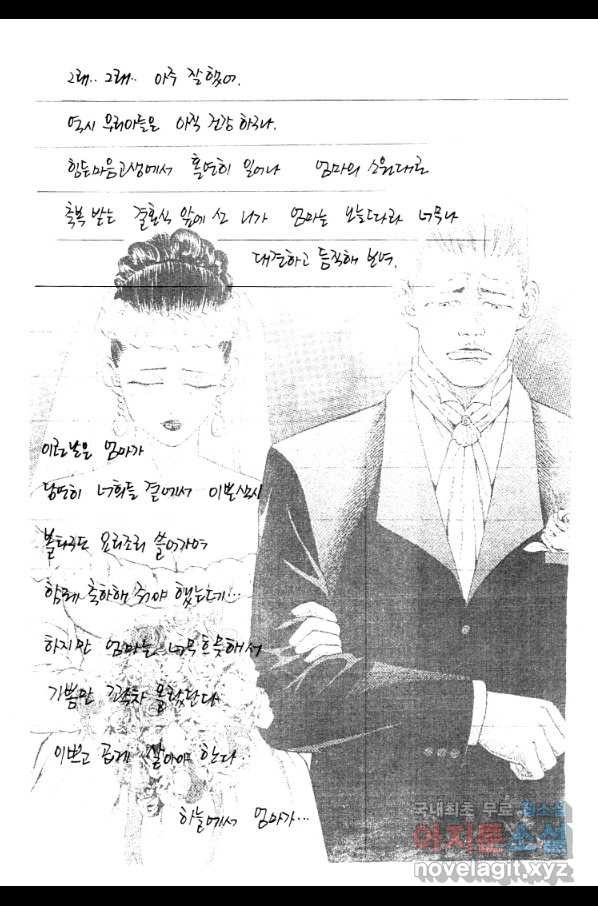 그래.. 그래.. 아주 잘했어.
역시 우리아들은 아직 건강하구나.
힘든마음고생에서 훌연히 일어나 엄마의 소원대로
축복 받는 결혼식 앞에 선 니가 엄마는 오늘따라 너무나
대견하고 듬직해 보여.
이런날은 엄마가
당연히 너희들 곁에서 이쁜
볼따구도 요리조리 쓸어가며
함께 축하해 줘야 했는데...
하지만 엄마는 너무흐뭇해서
기쁨만 꽉차 올랐단다
이쁘고 곱게 살아야 한다..
하늘에서 엄마가...
국내최초 무료 웹소설
아지툰소설
novelagit.xyz